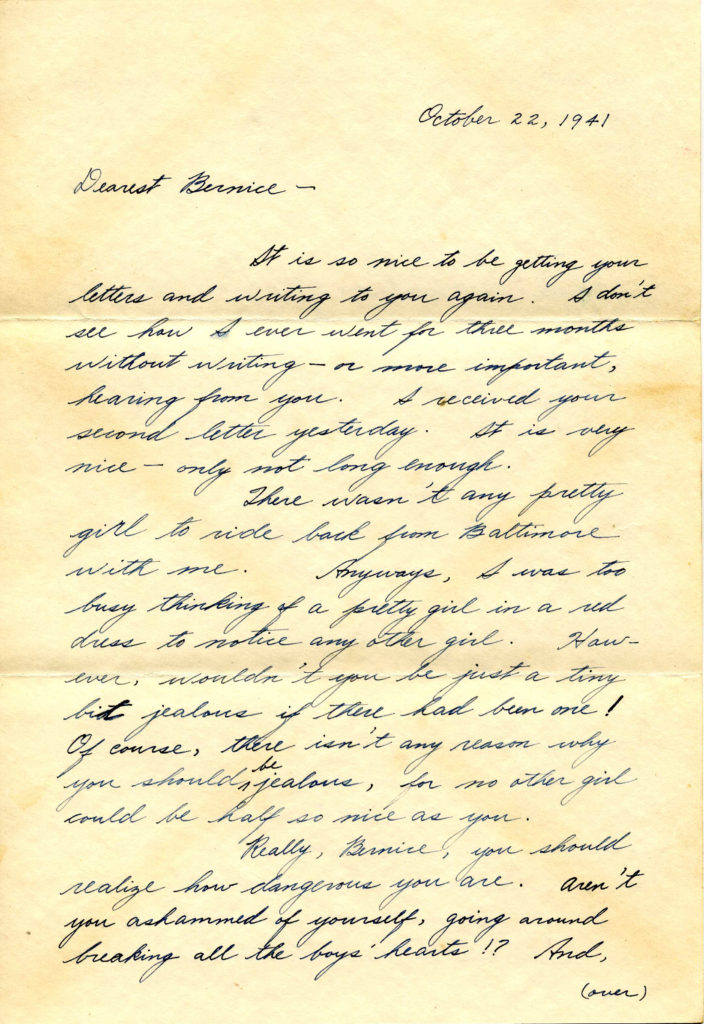 October 22, 1941
Dearest Bernice —
It is so nice to be getting your
letters and writing to you again. I don't
see how I ever went for three months
without writing — or more important,
hearing from you. I received your
second letter yesterday. It is very
nice — only not long enough.
There wasn't any pretty
girl to ride back from Baltimore
with me. Anyways, I was too
busy thinking of a pretty girl in a red
dress to notice any other girl. How-
ever, wouldn't you be just a tiny
bit jealous if there had been one!
Of course, there isn't any reason why
you should be jealous, for no other girl
could be half so nice as you.
Really, Bernice, you should
realize how dangerous you are. Aren't
you ashammed of yourself, going around
breaking all the boys' hearts!? And,
(over)